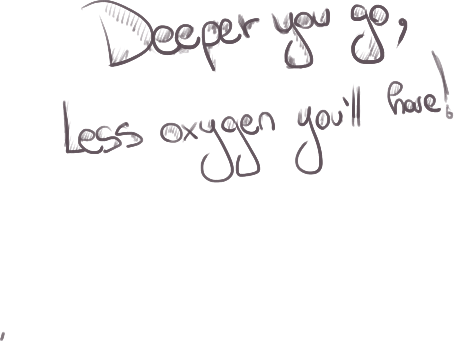 Deeper you go,
Less oxygen you'll have!